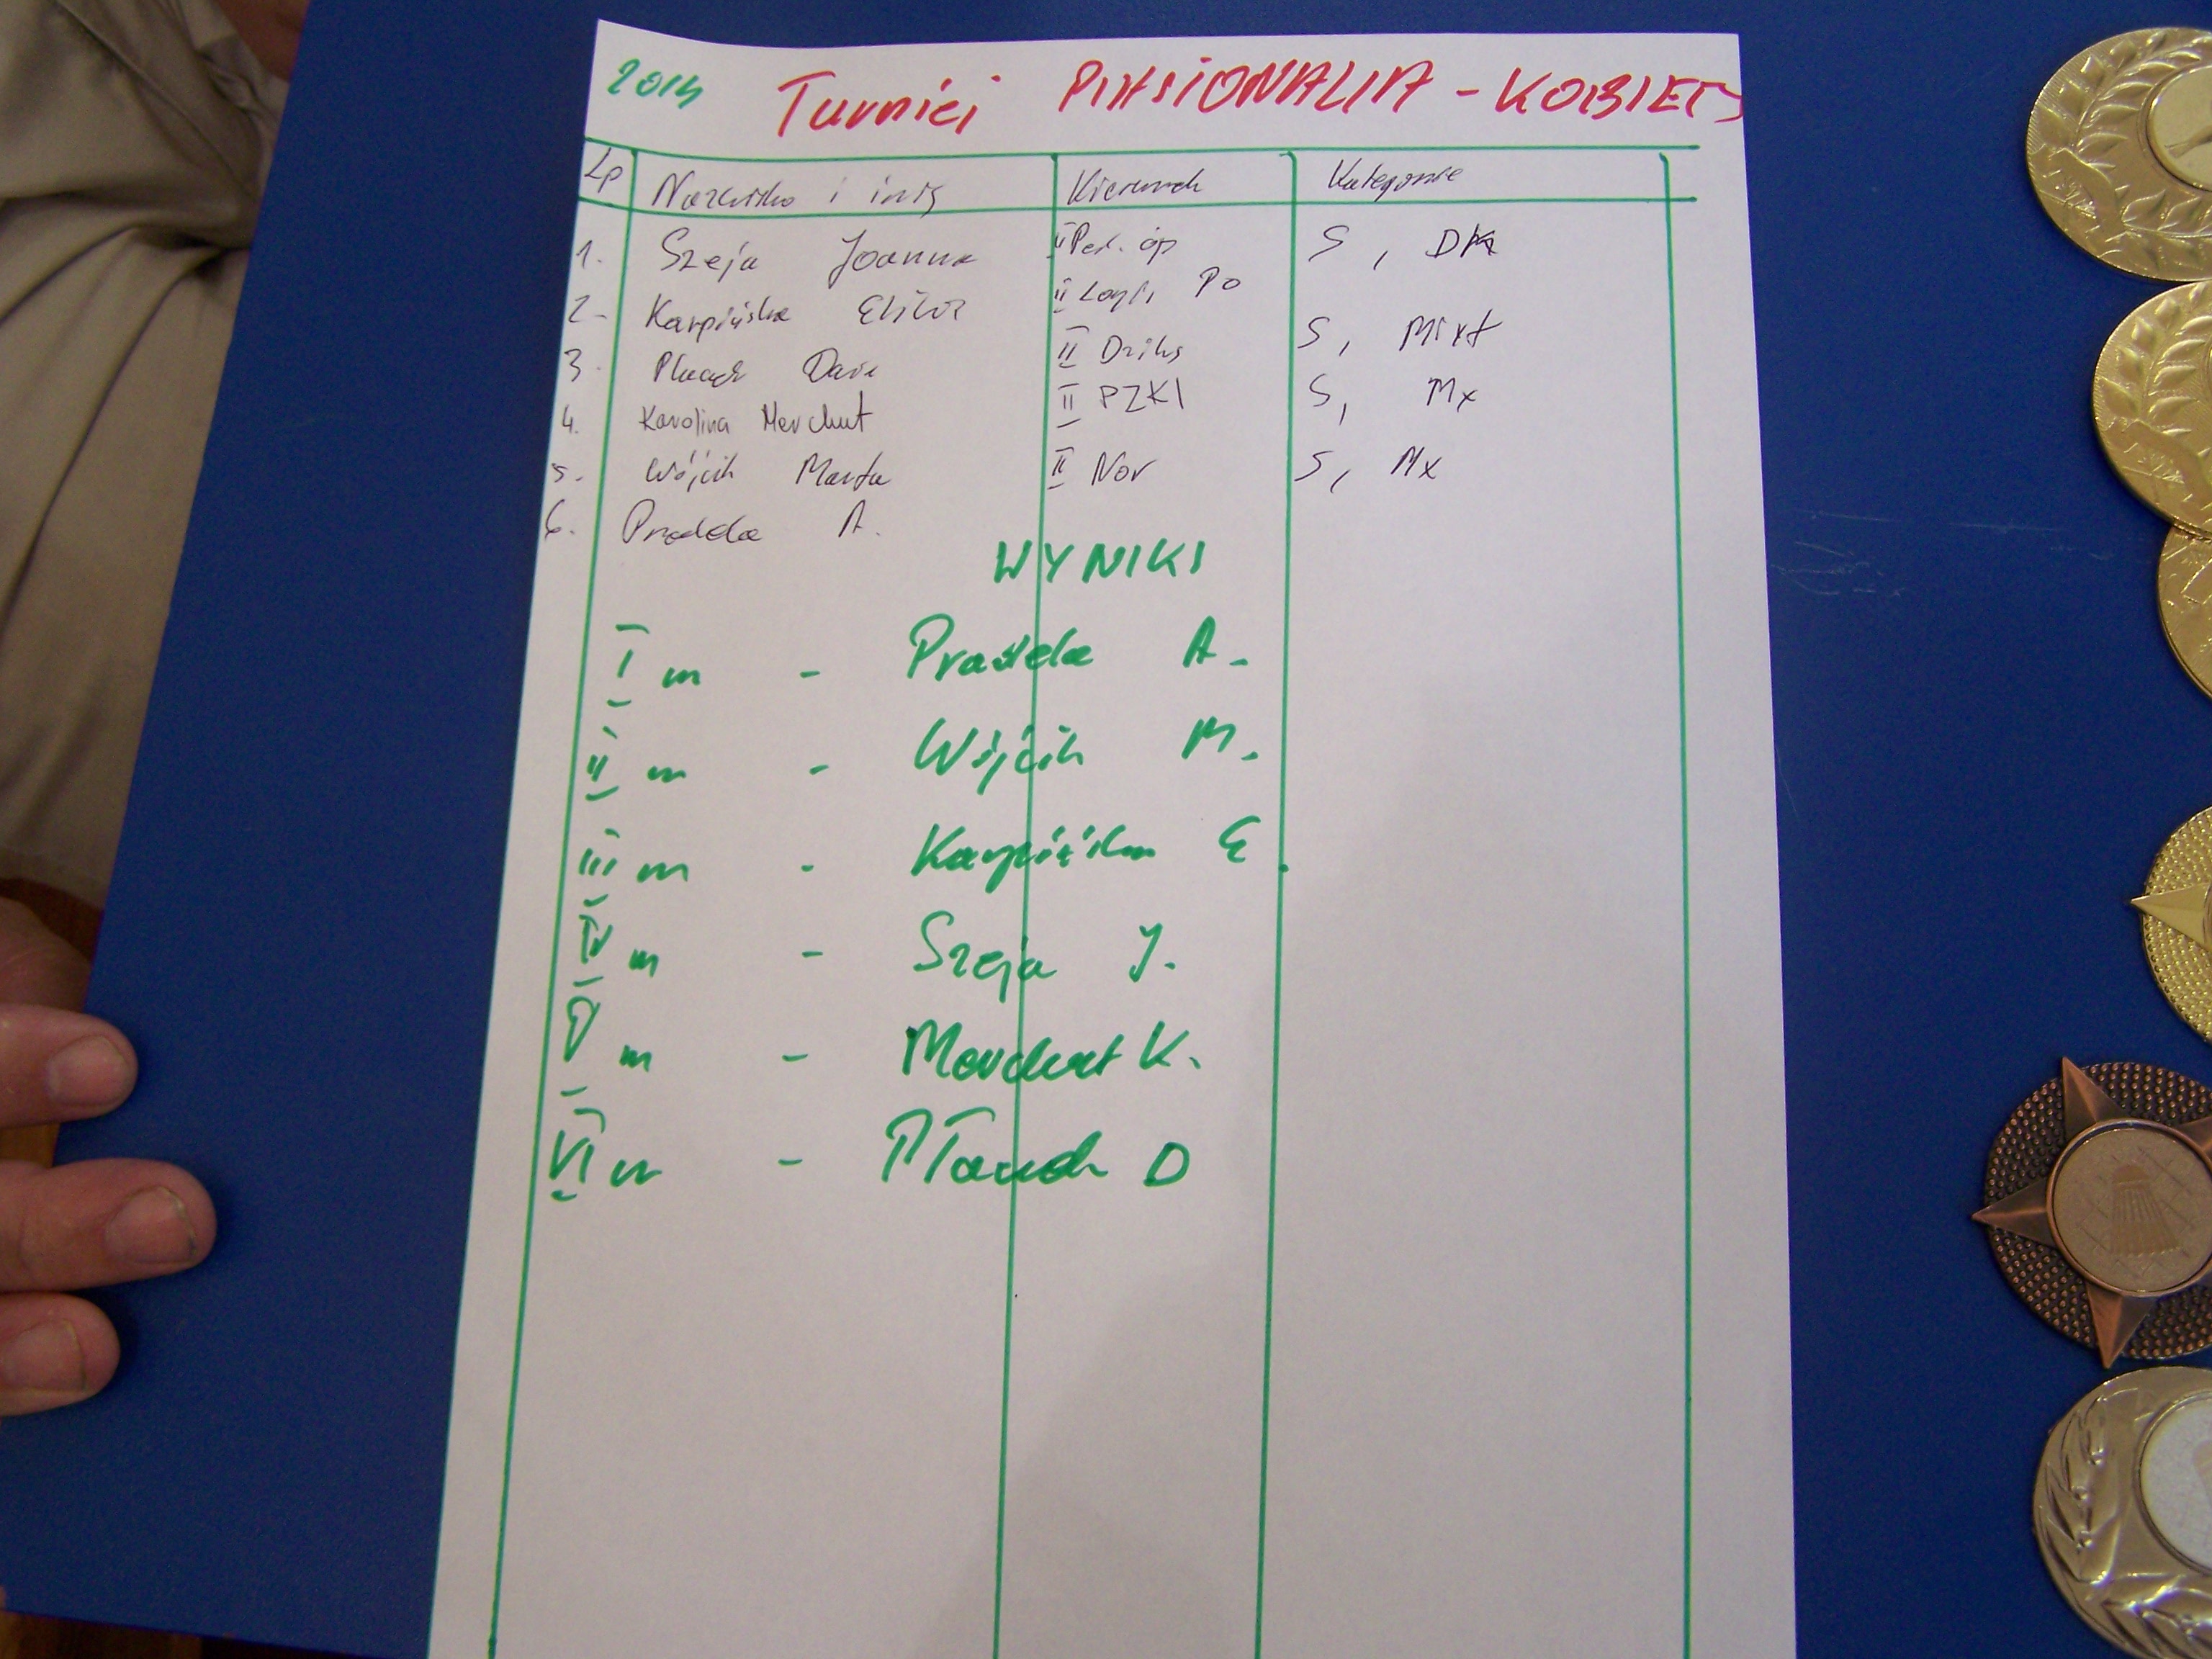 2014 Turniej PIKSIONALIA - KOBIETY
Lp Nazwisko i imię Kierunek Kategorie
1. Szeja Joanna II Ped. op S, DK
2. Karpińska II Po
3. Dari II S, Mixt
4. Karolina Merchut II PZKI S, Mx
5. Wójcik Marta II Nor S, Mx
6. A.
WYNIKI
I m - A.
II m - Wójcik M.
III m - Karpińska E.
IV m - Szeja J.
V m - Merchut K.
VI m - D